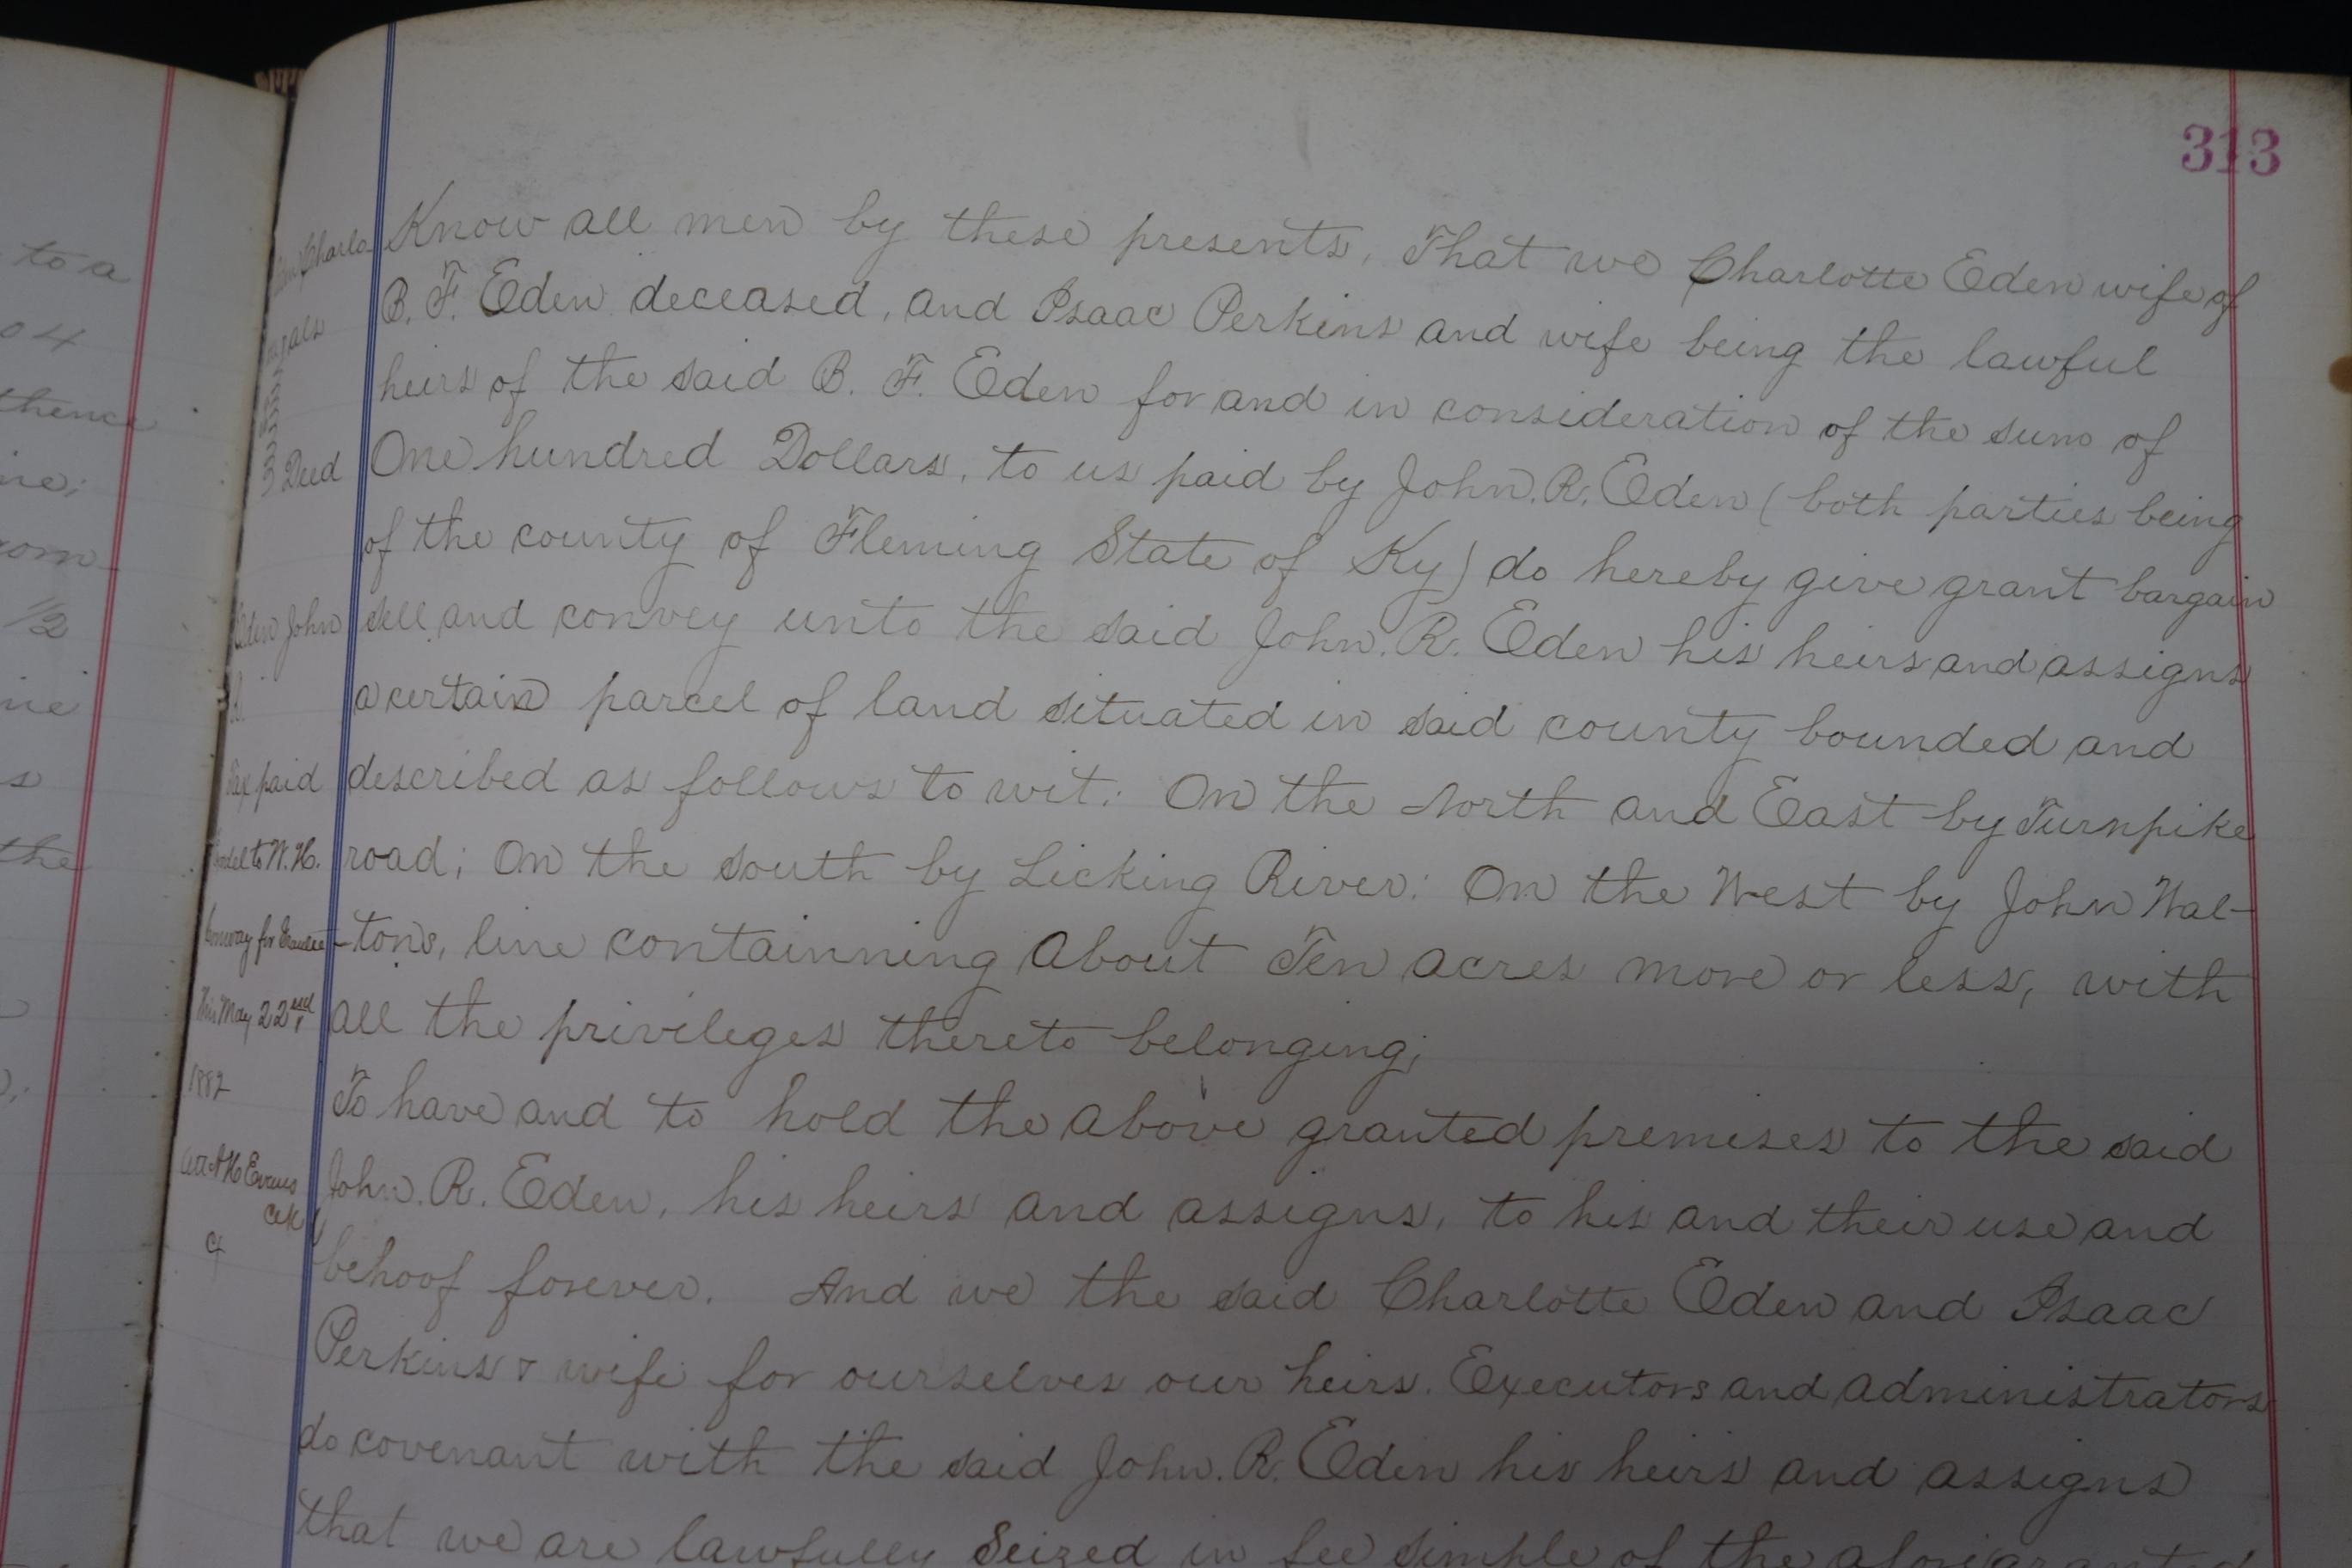 to a
04
thence
1/2
the
313
Charlo-
als
Deed
Eden John
R.
Tax paid
to W. H.
Conway for Grantee
This May 22nd
1882
Att. A H Evans
Clk
Know all men by these presents, That we Charlotte Eden wife of
B. F. Eden deceased, and Isaac Perkins and wife being the lawful
heirs of the said B. F. Eden for and in consideration of the sum of
One hundred Dollars, to us paid by John. R. Eden (both parties being
of the county of Fleming State of Ky) do hereby give grant bargain
sell and convey unto the said John. R. Eden his heirs and assigns
a certain parcel of land situated in said county bounded and
described as follows to wit: On the North and East by Turnpike
road; On the South by Licking River: On the West by John Wal-
-tons, line containning About Ten acres more or less, with
all the privileges thereto belonging;
To have and to hold the above granted premises to the said
John. R. Eden, his heirs and assigns, to his and their use and
behoof forever. And we the said Charlotte Eden and Isaac
Perkins & wife for ourselves our heirs. Executors and administrators
do covenant with the said John. R. Eden his heirs and assigns
that we are lawfully Seized in fee simple of the